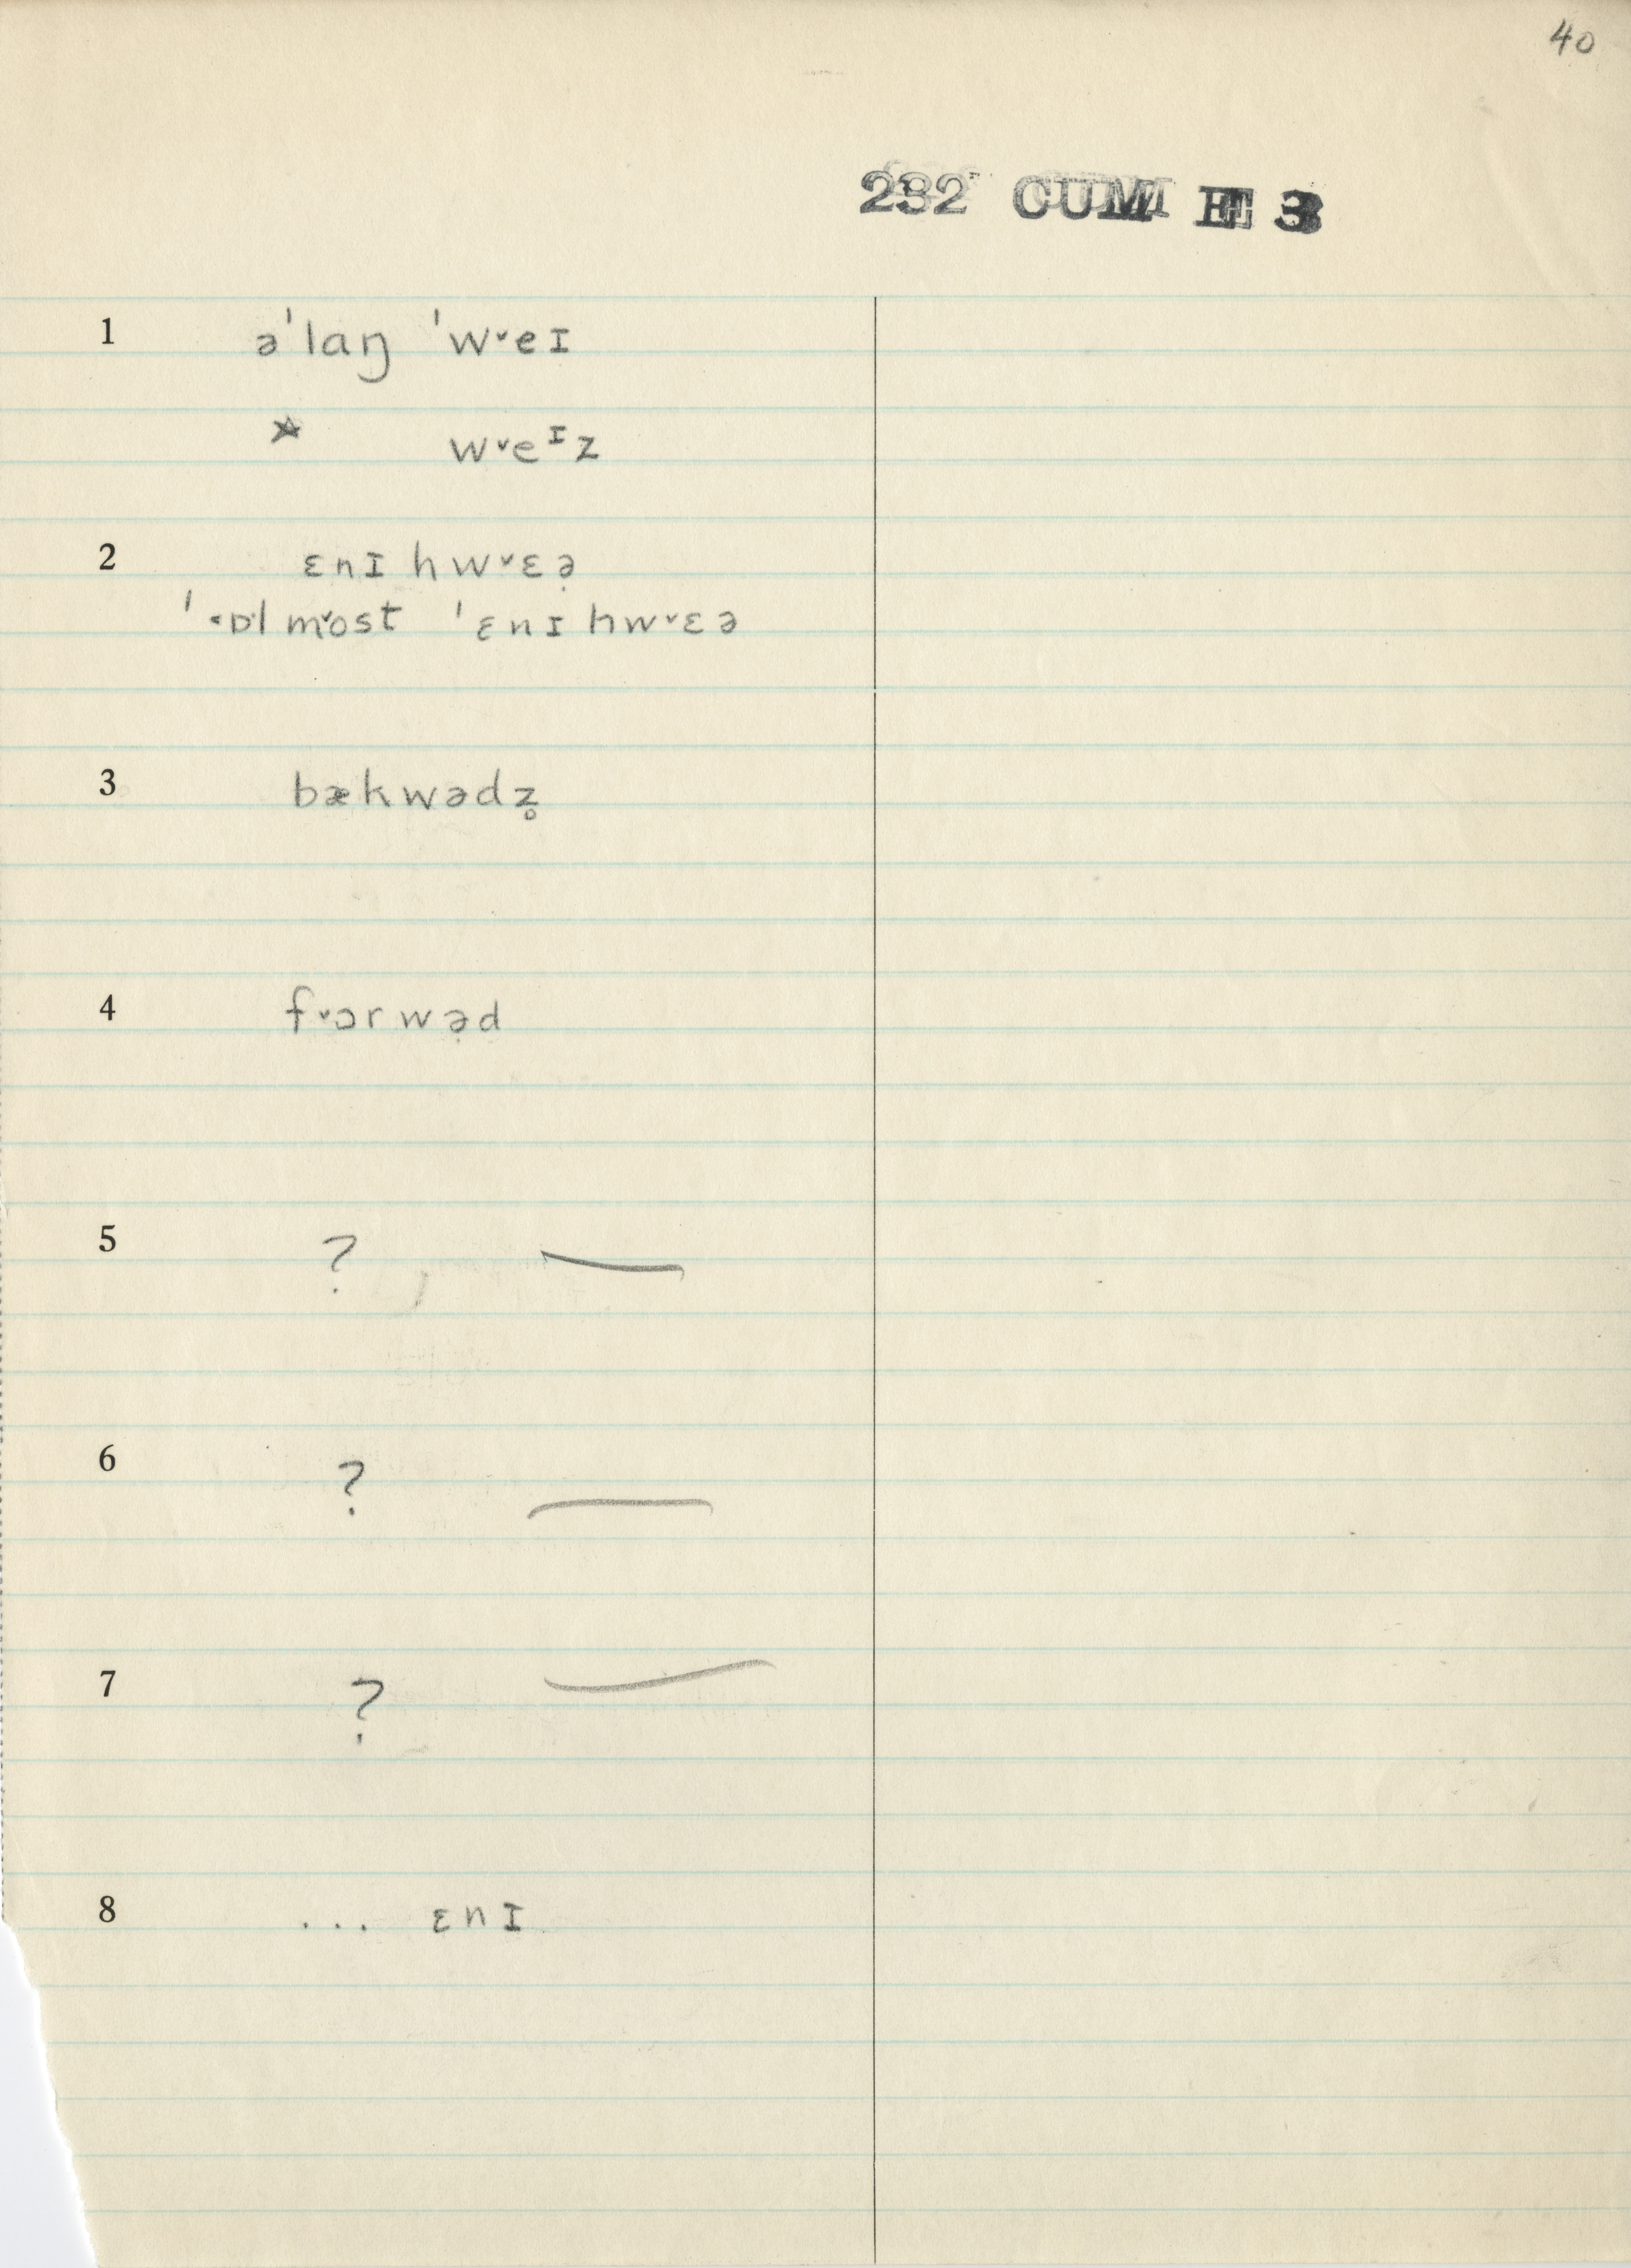 40
232 CUM E 3
1 əˈlaŋ ˈw˅eɪ
* w˅eᶦz
2 ɛnɪ hw˅ɛə̣
ˈ˂ɒlm˅ost ˈɛnɪ hw˅ɛə
3 bækwədz̥
4 f˅ɔrwə̣d
5 ? —
6 ? —
7 ? —
8 ... ɛnɪ